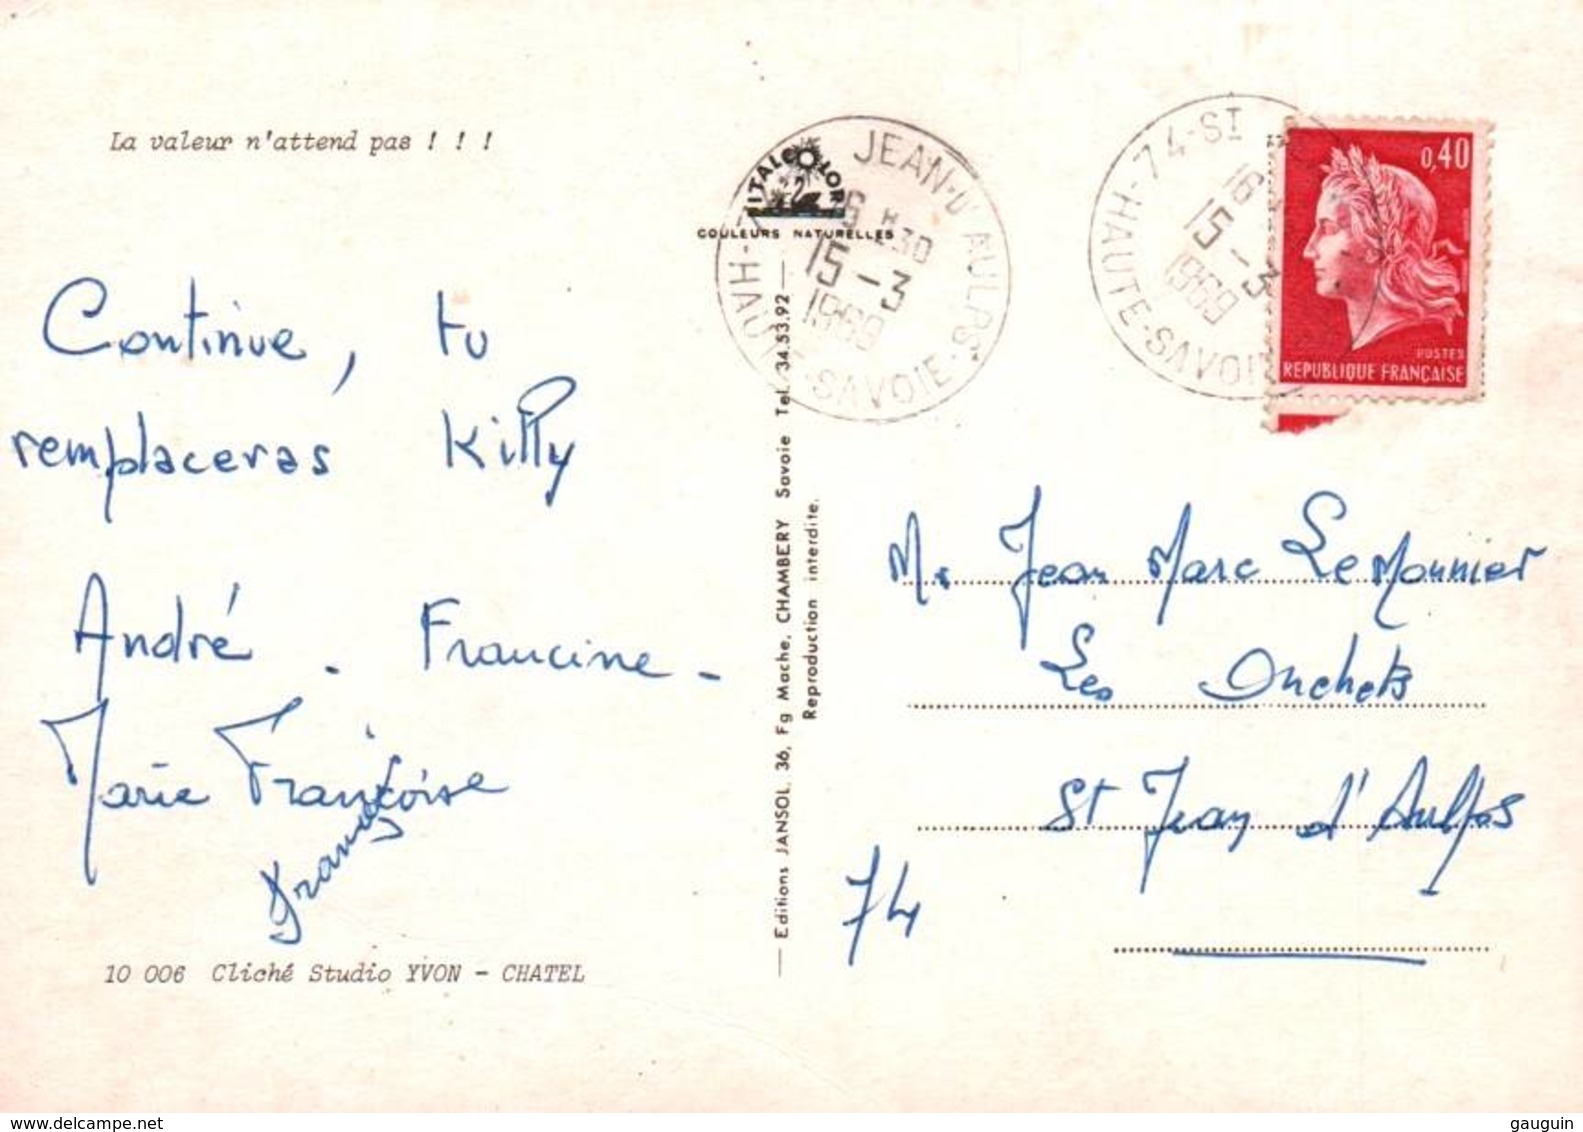 La valeur n'attend pas ! ! !
Continue, tu
remplaceras Killy
André - Francine -
Marie Françoise
10 006 Cliché Studio YVON - CHATEL
ITALCOLOR
COULEURS NATURELLES
Editions JANSOL, 36, Fg Mache, CHAMBERY Savoie Tel. 34.53.92
Reproduction interdite.
JEAN-D'AULPS
16 H 30
15-3
1969
HAUTE-SAVOIE
74-ST
16
15-3
1969
HAUTE-SAVOIE
0,40
POSTES
REPUBLIQUE FRANÇAISE
Mr Jean Marc LeMonnier
Les Onchets
St Jean d'Aulps
74
gauguin